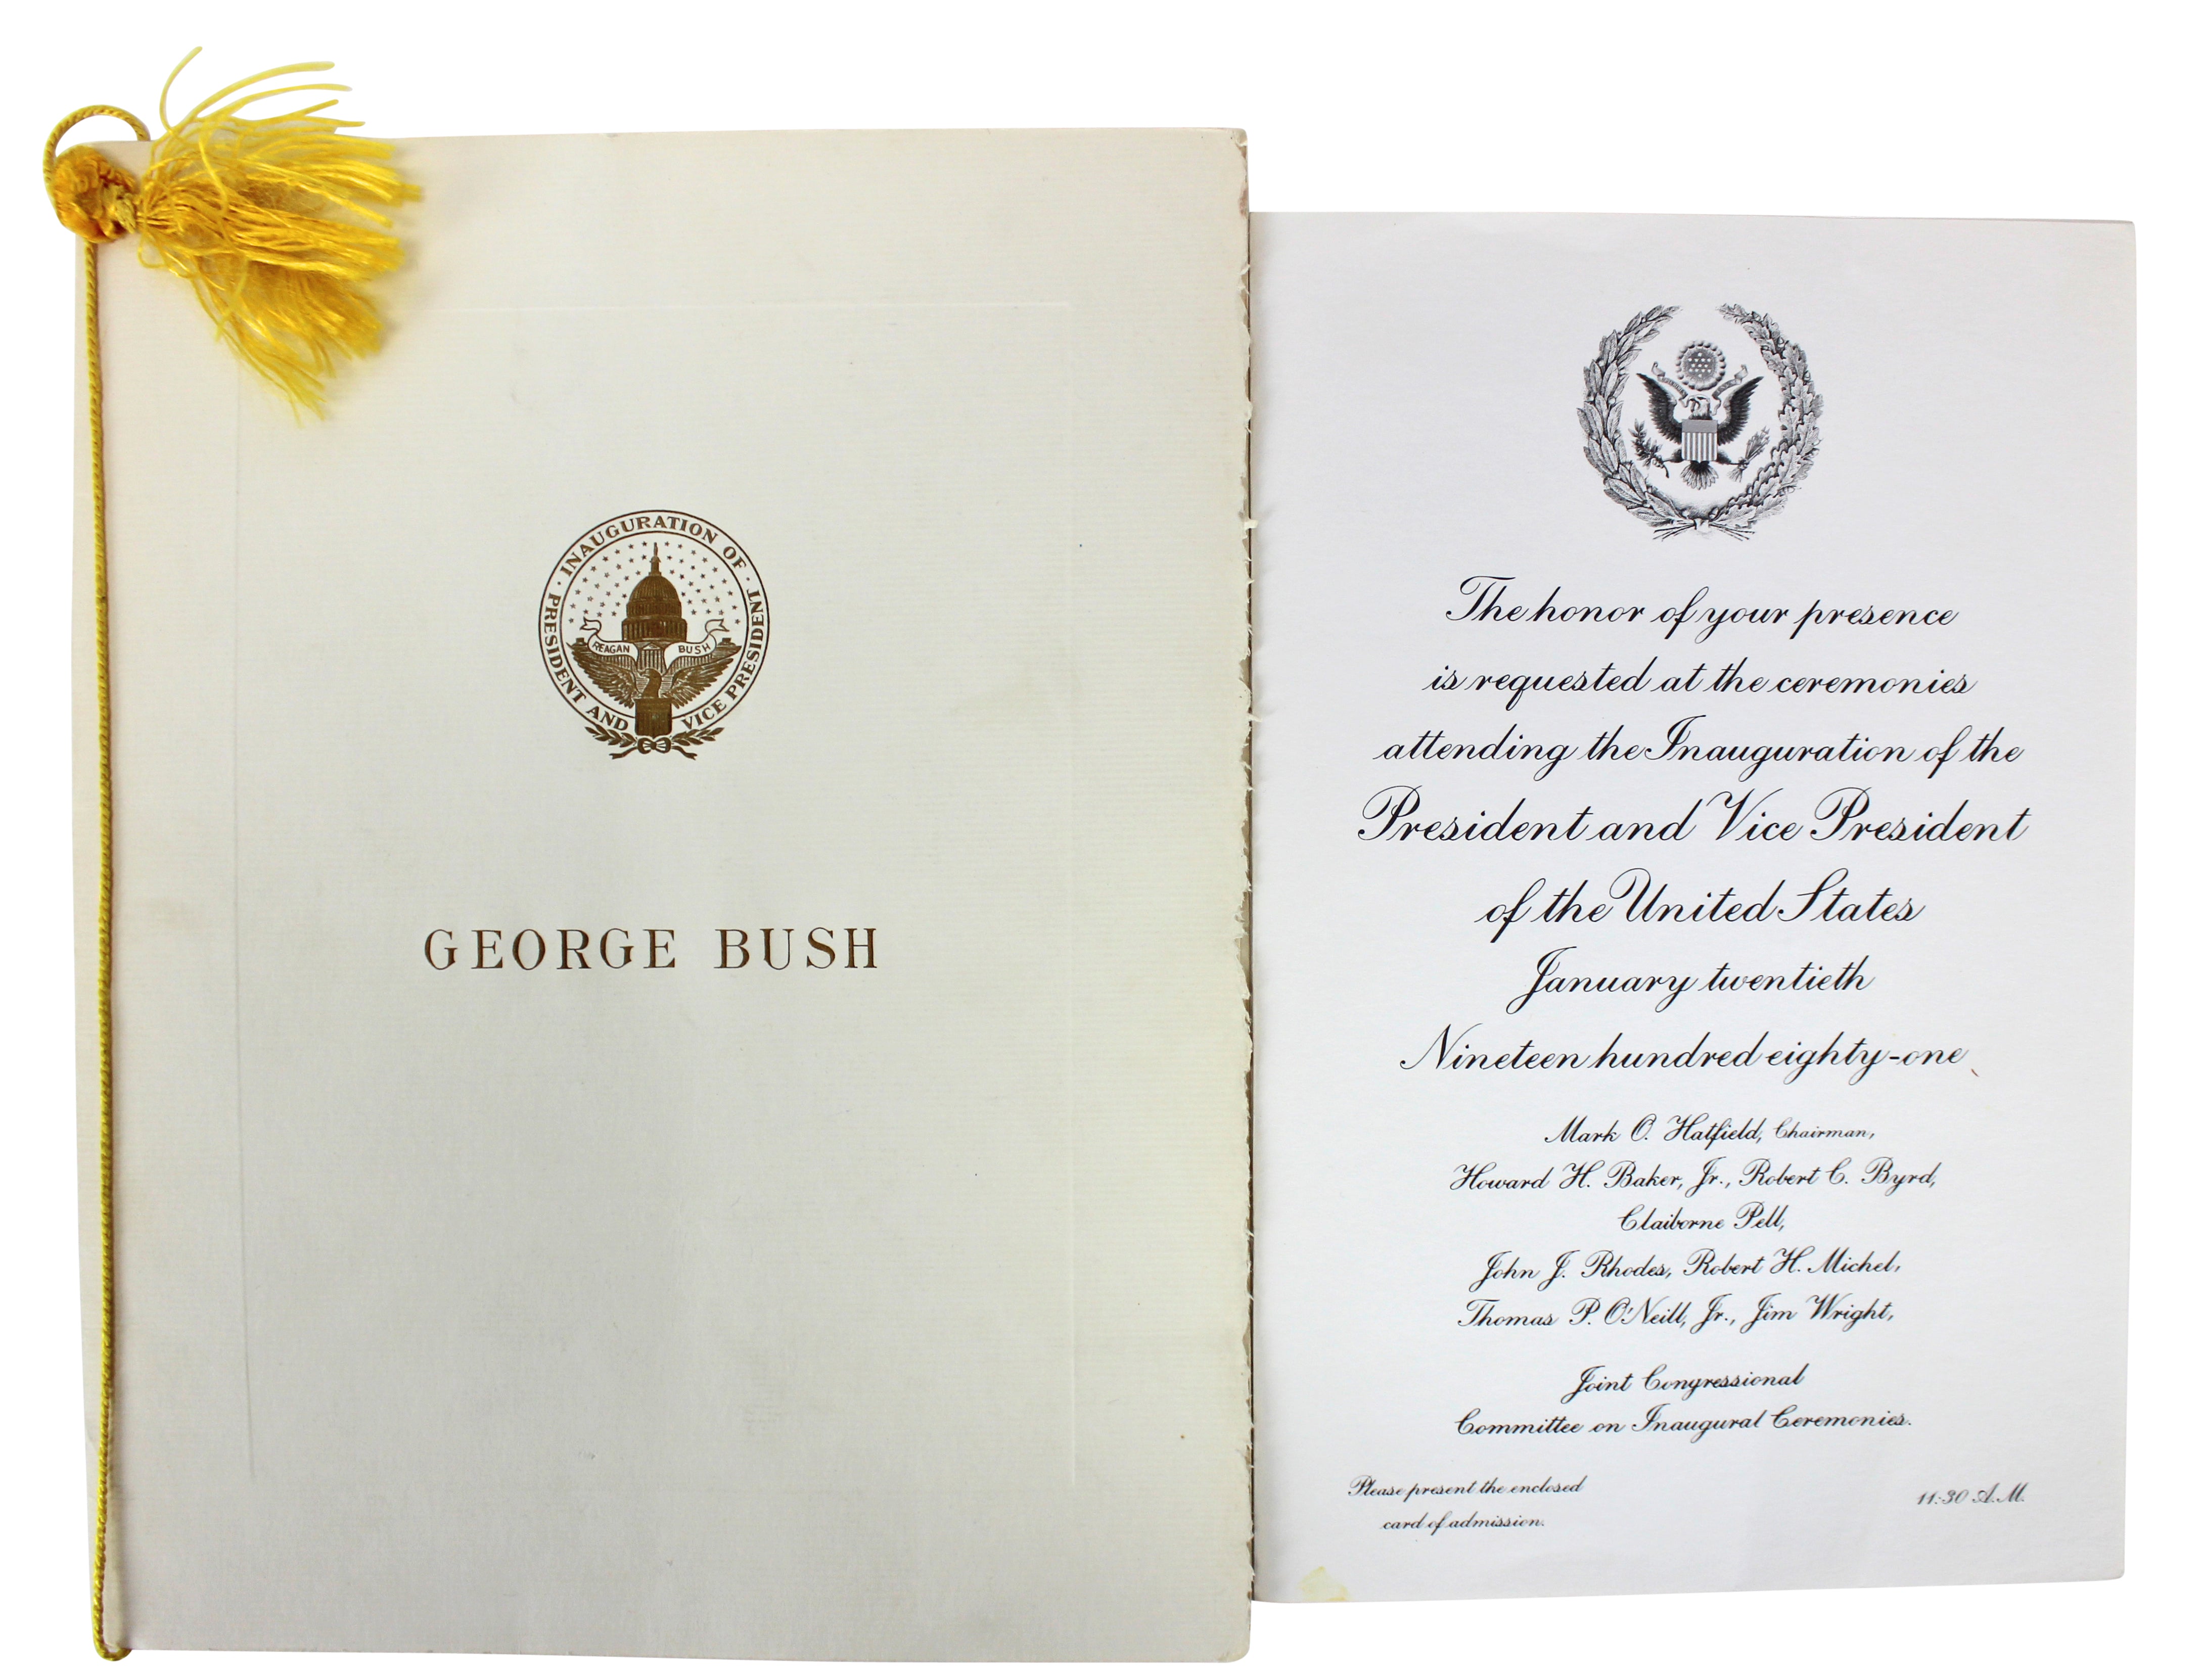 · INAUGURATION OF ·
PRESIDENT AND VICE PRESIDENT
REAGAN BUSH
GEORGE BUSH
The honor of your presence
is requested at the ceremonies
attending the Inauguration of the
President and Vice President
of the United States
January twentieth
Nineteen hundred eighty-one
Mark O. Hatfield, Chairman,
Howard H. Baker, Jr., Robert C. Byrd,
Claiborne Pell,
John J. Rhodes, Robert H. Michel,
Thomas P. O'Neill, Jr., Jim Wright,
Joint Congressional
Committee on Inaugural Ceremonies.
Please present the enclosed
card of admission.
11:30 A.M.